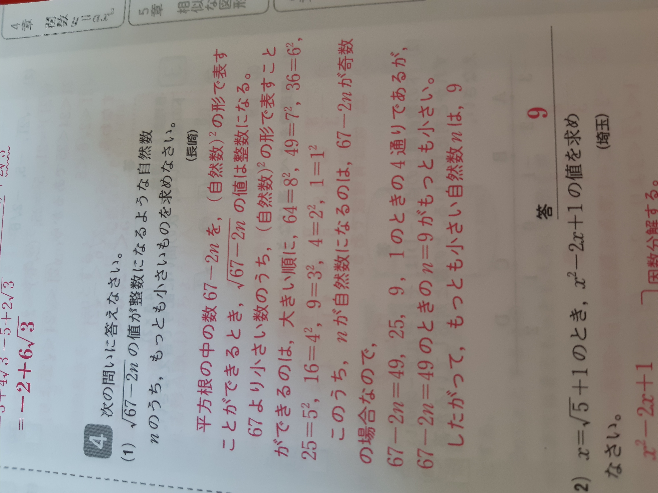 4章
5章 相似な図形
=-2+6√3
4 次の問いに答えなさい。
(1) √67-2n の値が整数になるような自然数
nのうち，もっとも小さいものを求めなさい。
(長崎)
平方根の中の数 67-2n を，(自然数)² の形で表す
ことができるとき，√67-2n の値は整数になる。
67より小さい数のうち，(自然数)² の形で表すこと
ができるのは，大きい順に，64=8²，49=7²，36=6²，
25=5²，16=4²，9=3²，4=2²，1=1²
このうち，nが自然数になるのは，67-2nが奇数
の場合なので，
67-2n=49，25，9，1のときの4通りであるが，
67-2n=49のときのn=9がもっとも小さい。
したがって，もっとも小さい自然数nは，9
答 9
2) x=√5+1のとき，x²-2x+1の値を求め
なさい。
(埼玉)
x²-2x+1
因数分解する。